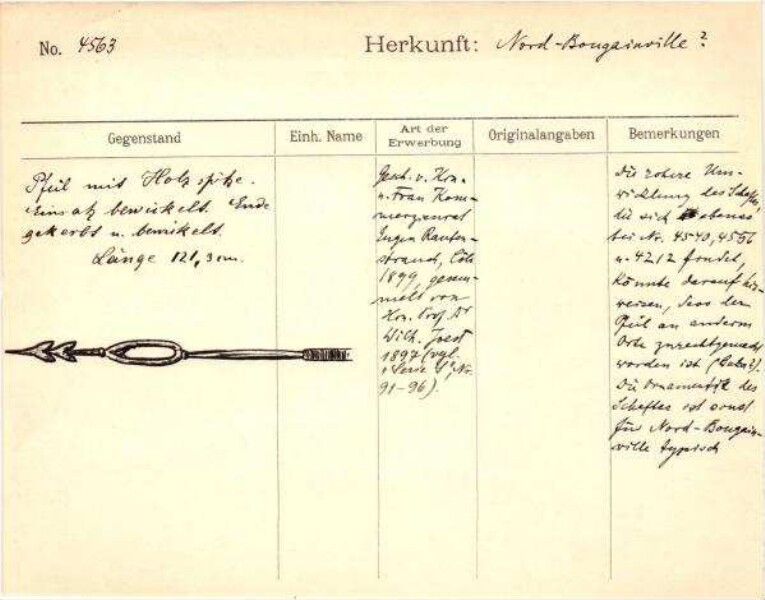 No. 4563
Herkunft: Nord-Bougainville?
Gegenstand
Einh. Name
Art der Erwerbung
Originalangaben
Bemerkungen
Pfeil mit Holzspitze.
Einsatz bewickelt. Ende
gekerbt u. bewickelt.
Länge 121,3 cm.
Gesch. v. Hrn.
u. Frau Kom-
merzienrat
Eugen Rauten-
strauch, Cöln
1899, gesam-
melt von
Hrn. Prof. Dr
Wilh. Joest
1897 (vgl.
"Serie S", Nr.
91-96).
Die rohere Um-
wicklung des Schaftes,
die sich ebenso
bei Nr. 4540, 4556
u. 4212 findet,
könnte darauf hin-
weisen, dass der
Pfeil an anderm
Orte zurechtgemacht
worden ist (Buka?).
Die Ornamentik des
Schaftes ist sonst
für Nord-Bougain-
ville typisch